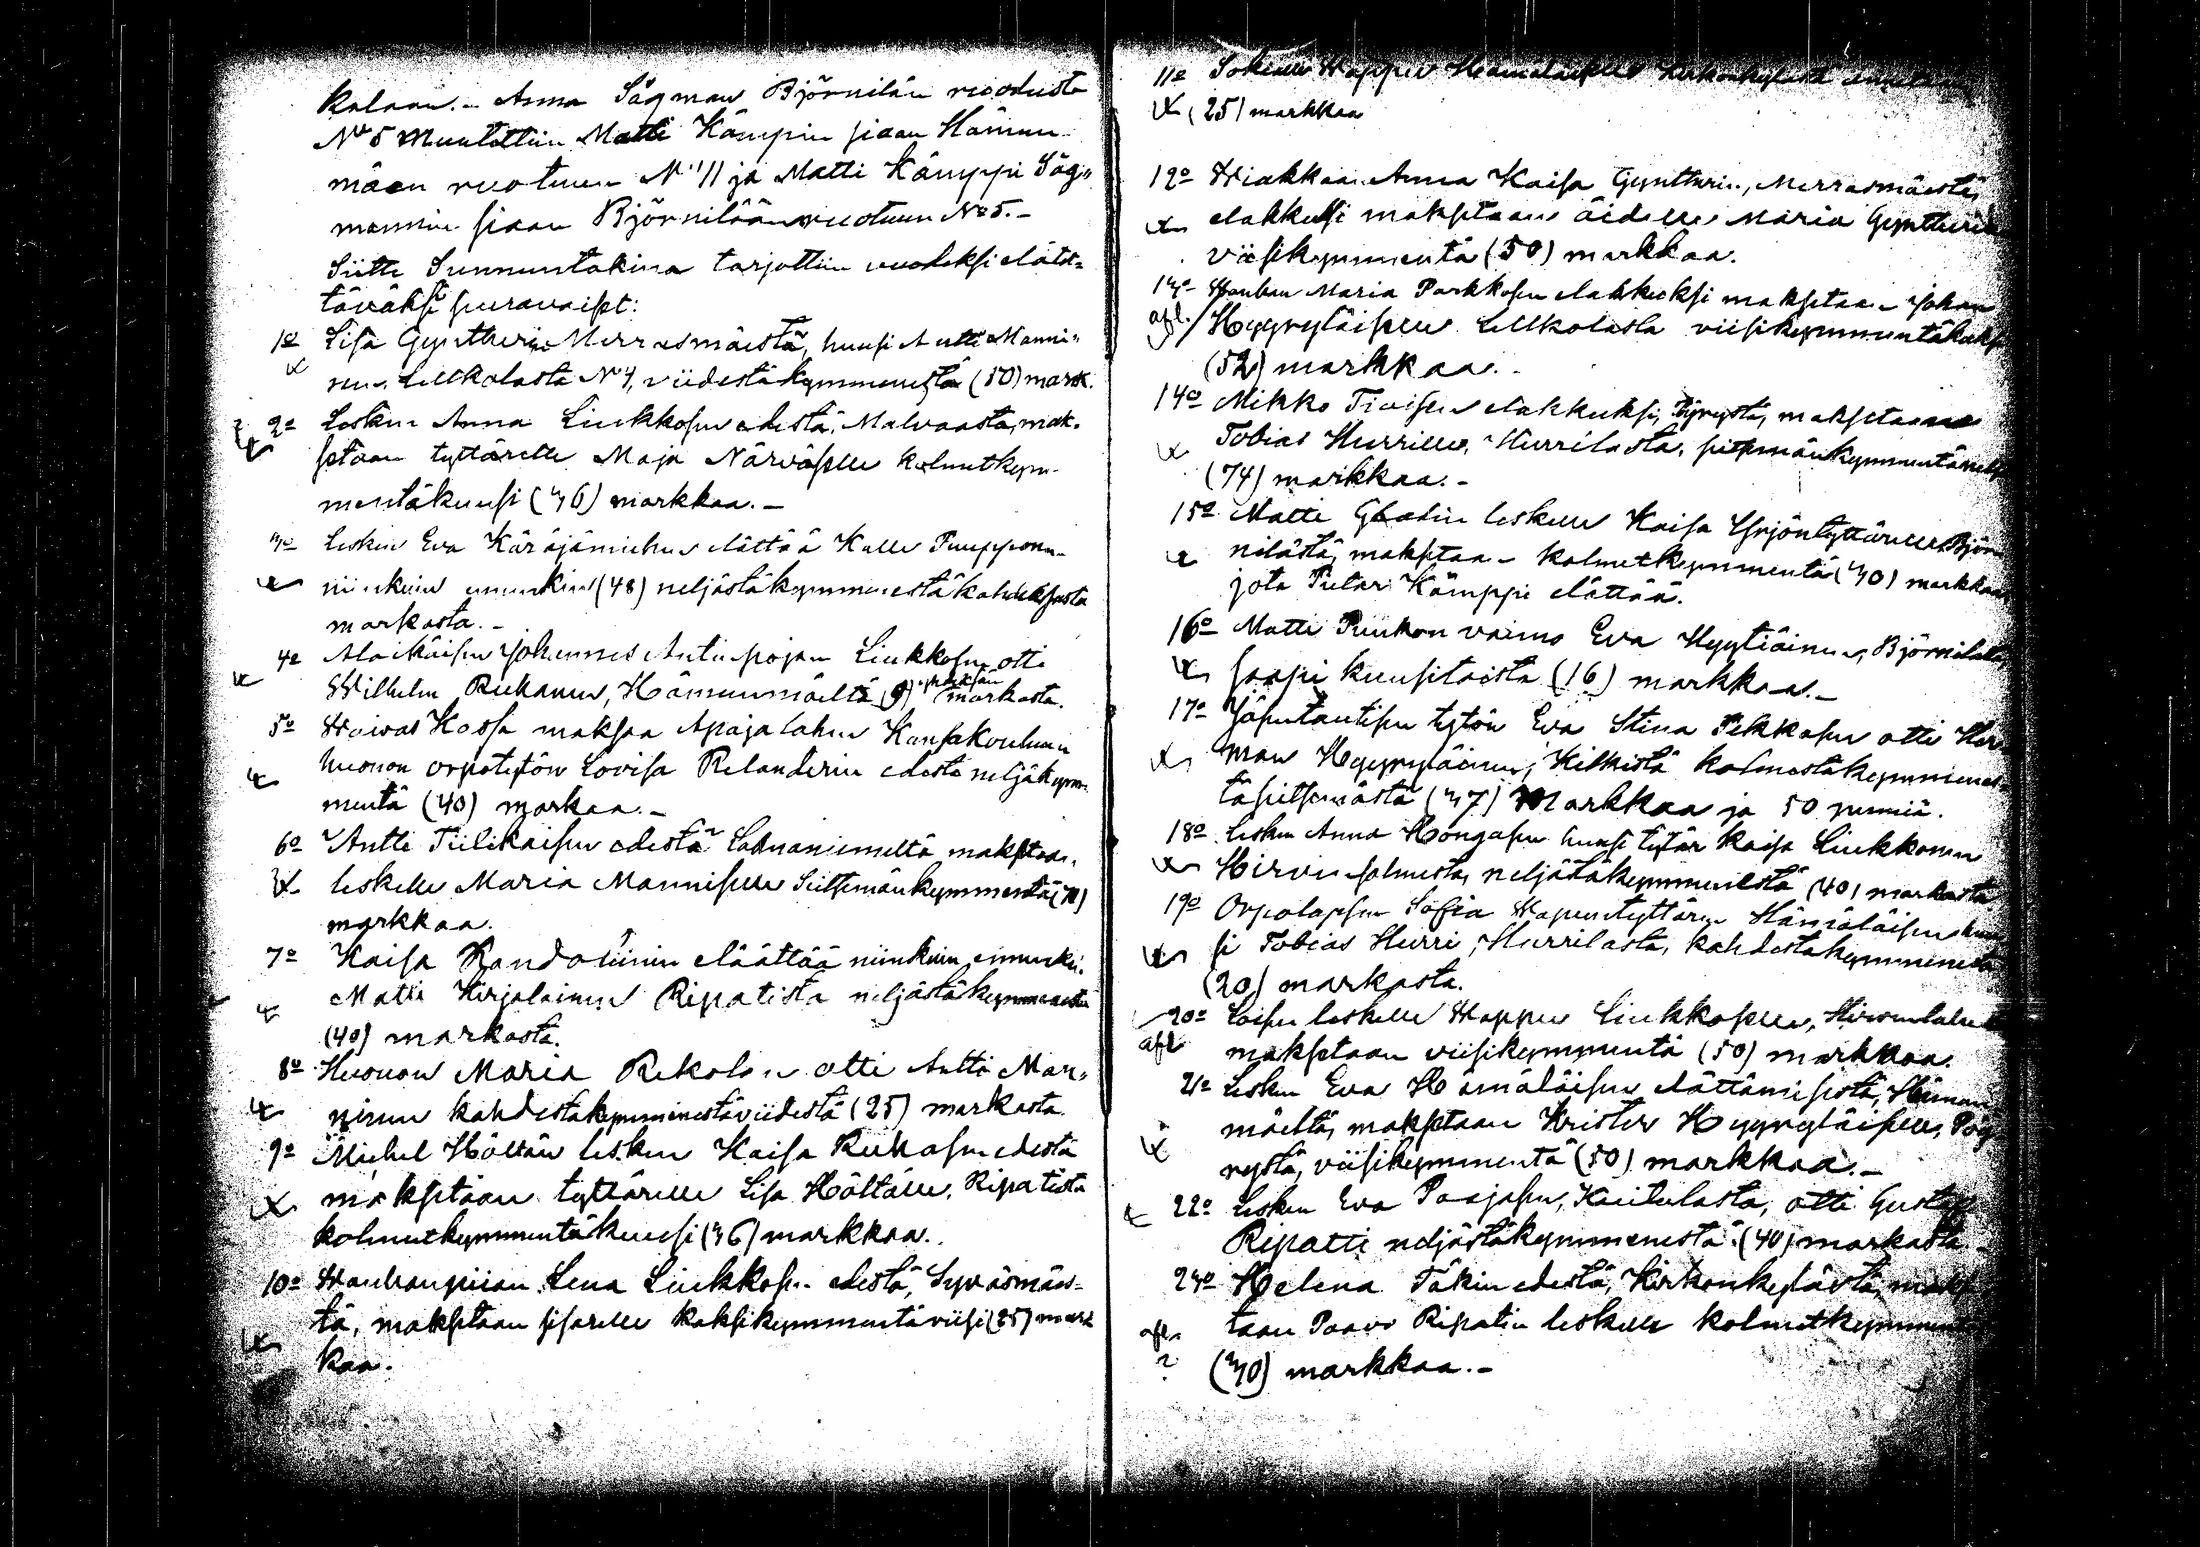 kalaan. – Anna Sågman Björnilän ruodusta
No 5 Muutettiin Matti Kämpin siaan Hämun-
mäen ruotuun No 11 ja Matti Kämppi Såg-
mannin siaan Björnilään ruotuun No 5. –
Siitte Sunnuntakina tarjottiin vuodeksi elätet-
täväksi seuravaiset:
1o Lisa Gyntherin Merrasmäestä, huusi Antti Manni-
nen Lellkolasta No 4, viidestäkymmenestä (50) mark.
2o Lesken Anna Liukkosen edestä, Malvaasta, mak-
setaan tyttärelle Maja Närväselle kolmetkym-
mentäkuusi (36) markkaa. –
3o Lesken Eva Käräjämiehen elättää Kalle Pumppone-
niinkuin ennenkin (48) neljästäkymmenestäkahdeksasta
markasta. –
4o Alaikäisen Johannes Antinpojan Liukkosen otti
Wilhelm Reukanen, Hämunmäeltä (9) yhdeksän markasta.
5o Waivas Kassa maksaa Apajalahen Kansakouluun
huonon orpotytön Lovisa Relanderin edestä neljäkym-
mentä (40) markaa. –
6o Antti Tiilikaisen edestä Lahnaniemeltä maksetaan
leskelle Maria Manniselle Seitsemänkymmentä (70)
markkaa.
7o Kaisa Randoliinin eläättää niinkuin ennenki-
Matti Kirjalainen Ripatista neljästäkymmenestä
(40) markasta.
8o Huonon Maria Rekolan otti Antti Man-
ninen kahdestakymmenestäviidestä (25) markasta.
9o Michel Hölttän lesken Kaisa Reukasen edestä
maksetaan tyttärelle Lisa Hölttälle, Ripatista
kolmetkymmentäkuusi (36) markkaa.
10o Wanhanpiian Lena Liukkosen edestä, Syväsmäes-
tä, maksetaan sisarelle kaksikymmentäviisi (25) mark
kaa.
11o Sokean Wappu Hämäläiselle Kirkonkylästä
(25) markkaa
12o Wiakkaan Anna Kaisa Gyntherin, Merrasmäestä,
elakkeksi maksetaan äidille Maria Gyntherille
viisikymmentä (50) markkaa.
13o Wanhan Maria Parkkosen elakkeksi maksetaan Johan
afl. Hyyryläiselle Lellkolasta viisikymmentäkaksi
(52) markkaa. –
14o Mikko Tiaisen elakkeksi, Pöyrystä, maksetaan
Tobias Hurrille, Hurrilasta, seitsemänkymmentäneljä
(74) markkaa. –
15o Matti Gladin leskelle Kaisa Yrjöntyttärelle, Björ-
nilästä, maksetaan kolmetkymmentä (30) markkaa
jota Pietari Kämppi elättää.
16o Matti Puukon vaimo Eva Hyytiäinen, Björnilästä,
saapi kuusitoista (16) markkaa. –
17o Jäsentautisen tytön Eva Stina Pekkasen otti Her-
man Hyyryläinen, Kilkistä kolmestakymmenes-
täseitsemästä (37) Markkaa ja 50 penniä.
18o Lesken Anna Hongasen huusi tytär Kaisa Liukkonen
Hirvensalmesta, neljästäkymmenestä (40) markasta
19o Orpolapsen Sofia Wapuntyttären Hämäläisen huu-
si Tobias Hurri, Hurrilasta, kahdestakymmenestä
(20) markasta.
20o Loisen leskelle Wappu Liukkoselle,
afl maksetaan viisikymmentä (50) markkaa.
21o Lesken Eva Hämäläisen elättämisestä, Hämun-
mäeltä, maksetaan Krister Hyyryläiselle, Pöy-
rystä, viisikymmentä (50) markkaa. –
22o Lesken Eva Paajasen, Kuitulasta, otti Gustaf
Ripatti neljästäkymmenestä (40) markasta –
23o Helena Täkin edestä, Kirkonkylästä, makse-
afl. taan Paavo Ripatin leskelle kolmetkymmentä
? (30) markkaa. –